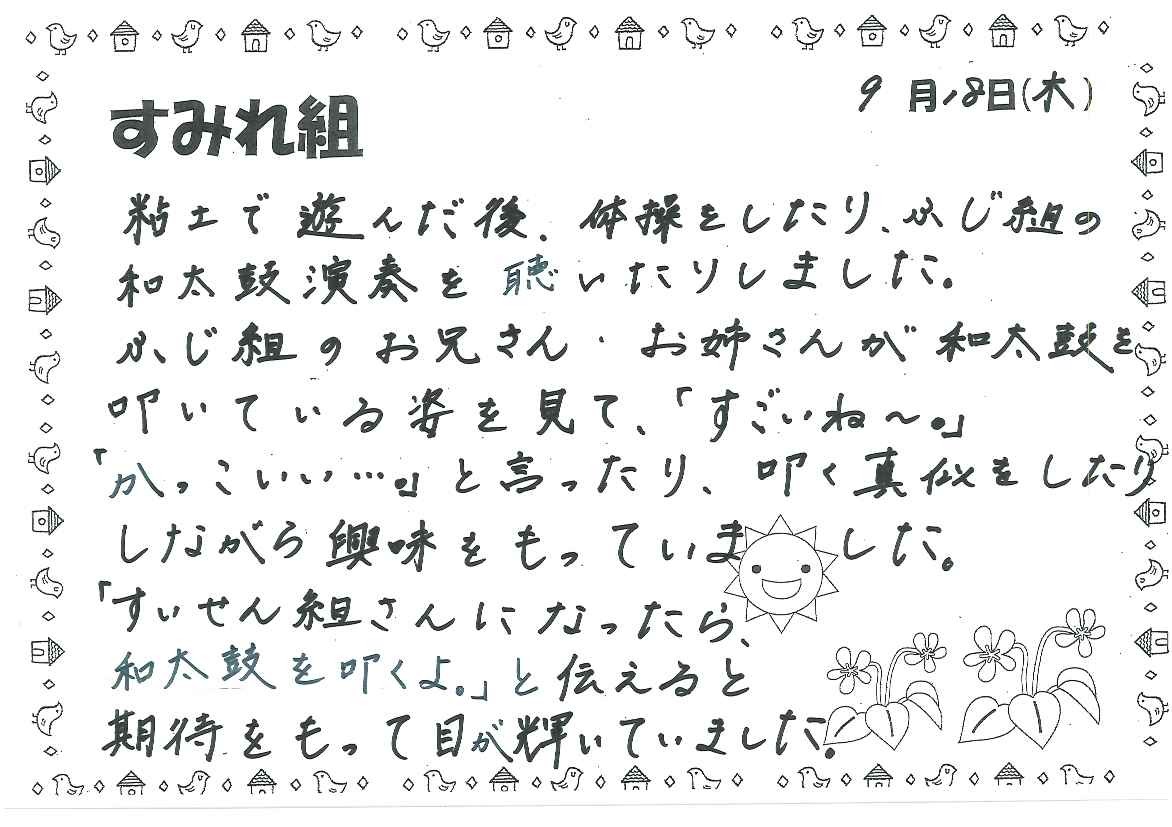 9月18日(木)
すみれ組
粘土で遊んだ後、体操をしたり、ふじ組の
和太鼓演奏を聴いたりしました。
ふじ組のお兄さん・お姉さんが和太鼓を
叩いている姿を見て、「すごいね～。」
「かっこいい…。」と言ったり、叩く真似をしたり
しながら興味をもっていました。
「すいせん組さんになったら、
和太鼓を叩くよ。」と伝えると
期待をもって目が輝いていました。